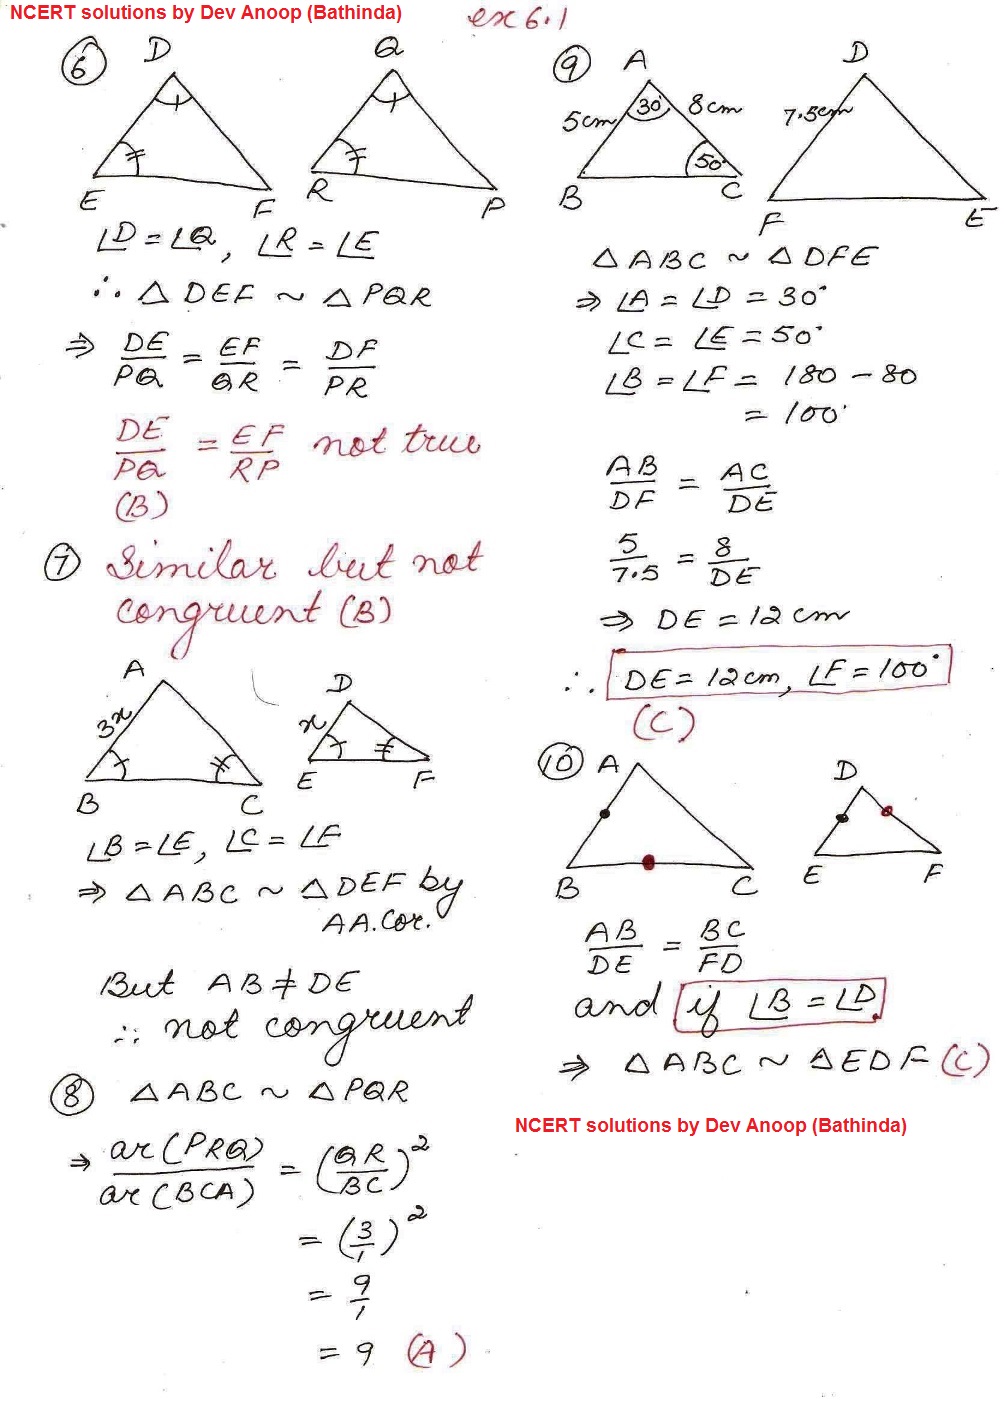 NCERT solutions by Dev Anoop (Bathinda)
ex 6.1
⑥
D
E
F
Q
R
P
∠D = ∠Q, ∠R = ∠E
∴ △ DEF ~ △ PQR
⇒ DE/PQ = EF/QR = DF/PR
DE/PQ = EF/RP not true
(B)
⑦ Similar but not
congruent (B)
A
3x
B
C
D
x
E
F
∠B = ∠E, ∠C = ∠F
⇒ △ ABC ~ △ DEF by
AA. Cor.
But AB ≠ DE
∴ not congruent
⑧ △ ABC ~ △ PQR
⇒ ar (PRQ)/ar (BCA) = (QR/BC)²
= (3/1)²
= 9/1
= 9 (A)
⑨
A
30°
5cm
8cm
50°
B
C
D
7.5cm
F
E
△ ABC ~ △ DFE
⇒ ∠A = ∠D = 30°
∠C = ∠E = 50°
∠B = ∠F = 180 - 80
= 100°
AB/DF = AC/DE
5/7.5 = 8/DE
⇒ DE = 12 cm
∴ DE = 12cm, ∠F = 100°
(C)
⑩
A
B
C
D
E
F
AB/DE = BC/FD
and if ∠B = ∠D
⇒ △ ABC ~ △ EDF (C)
NCERT solutions by Dev Anoop (Bathinda)